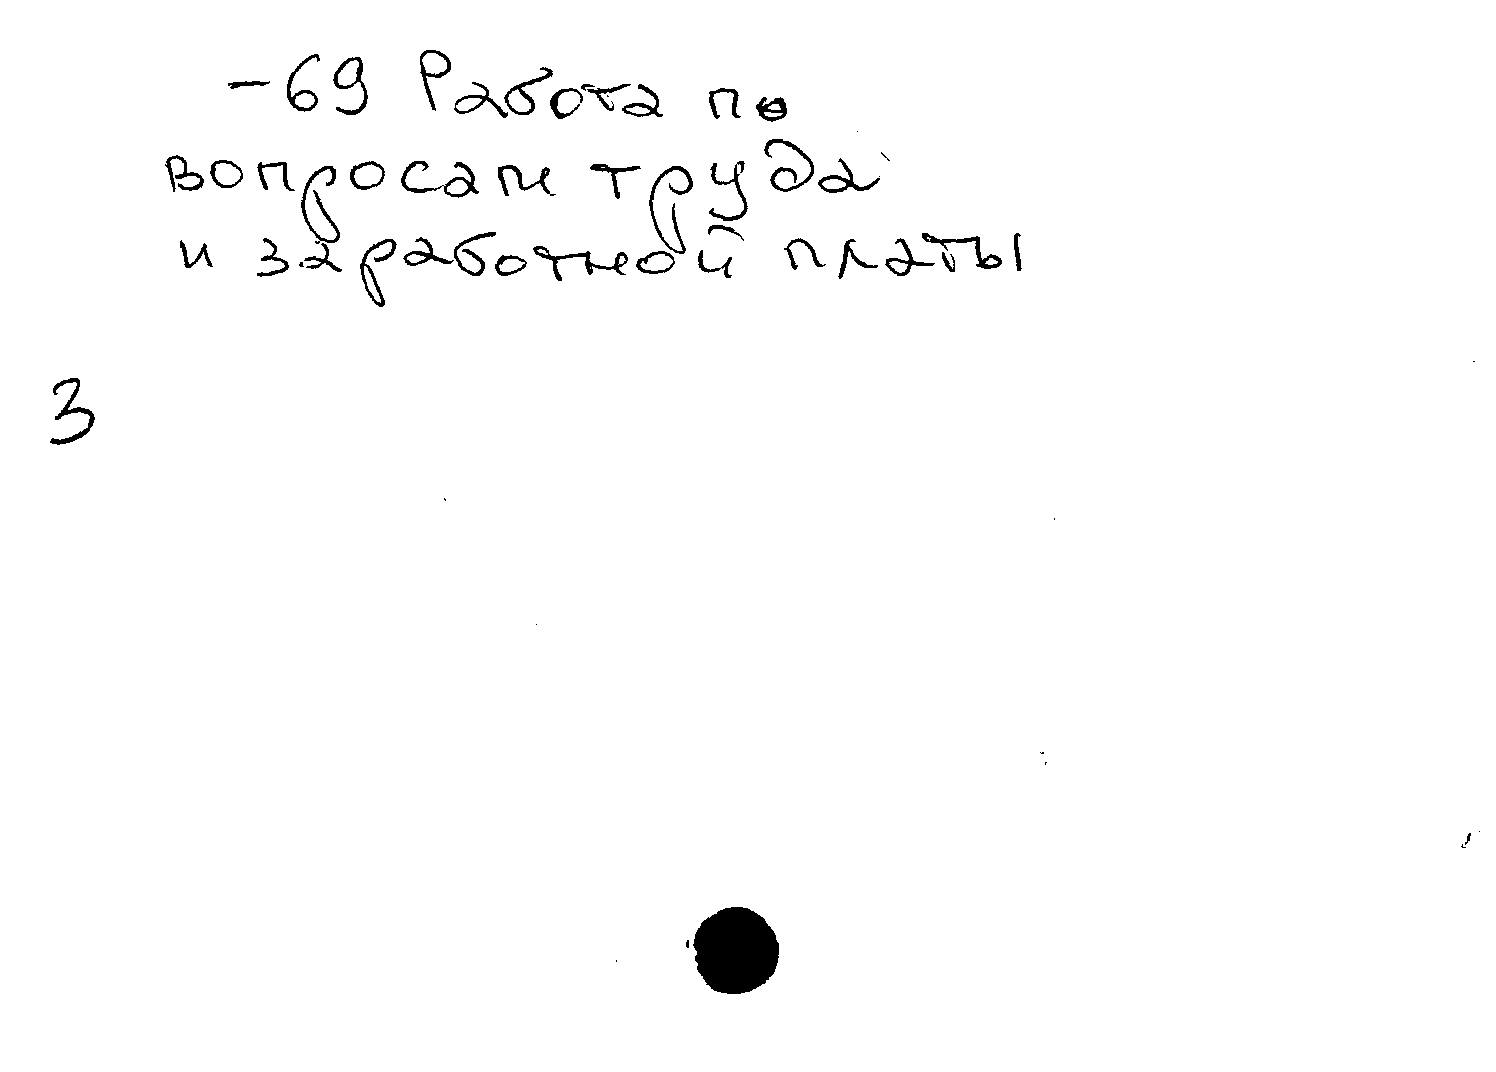 -69 Работа по
вопросам труда
и заработной платы
3